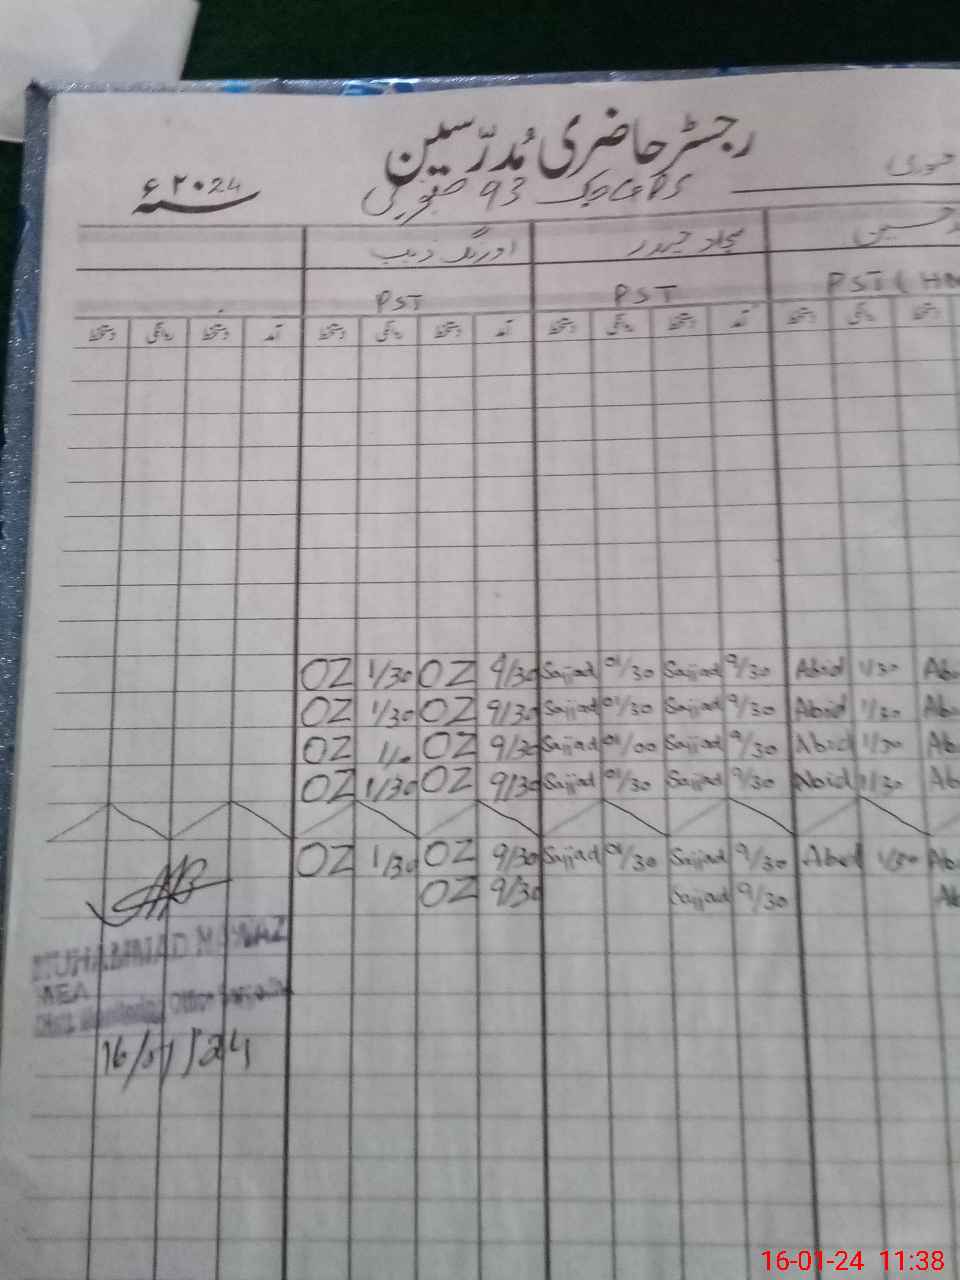 رجسٹر حاضری مُدرّسین
جنوری
GPS چک 93
۲۰24ء
حسین
سجاد حیدر
اورنگ زیب
PST (HM
PST
PST
دستخط روانگی دستخط آمد دستخط روانگی دستخط آمد دستخط روانگی دستخط آمد دستخط روانگی دستخط
OZ 1/30 OZ 9/30 Sajjad 01/30 Sajjad 9/30 Abid 1/30 Ab
OZ 1/30 OZ 9/30 Sajjad 01/30 Sajjad 9/30 Abid 1/30 Ab
OZ OZ 9/30 Sajjad 01/00 Sajjad 9/30 Abid 1/30 Ab
OZ 1/30 OZ 9/30 Sajjad 01/30 Sajjad 9/30 Abid 1/30 Ab
OZ 1/30 OZ 9/30 Sajjad 01/30 Sajjad 9/30 Abid 1/30 Ab
OZ 9/30 Sajjad 9/30 Ab
MUHAMMAD NAWAZ
MEA
Distt. Monitoring Officer Sargodha
16/01/24
16-01-24 11:38